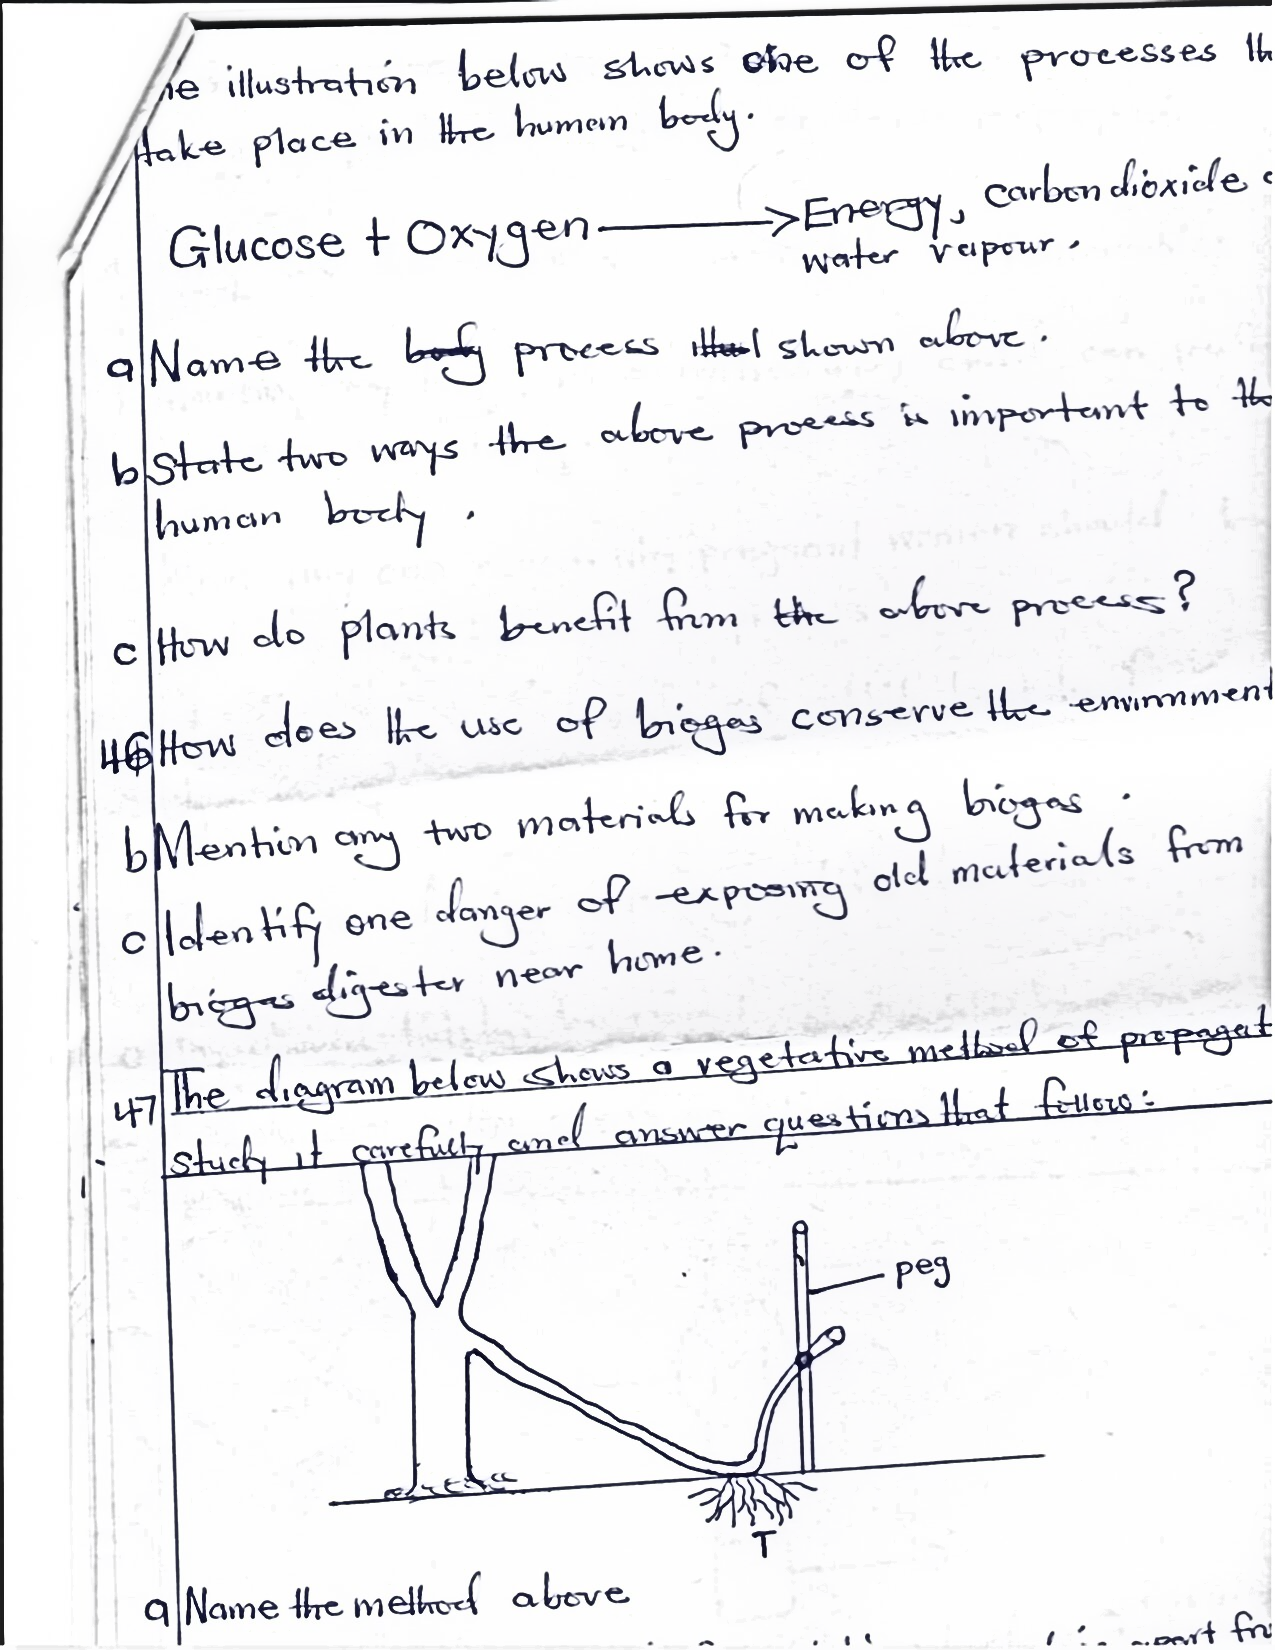 he illustration below shows one of the processes th
take place in the human body.
Glucose + Oxygen → Energy, carbondioxide
water vapour.
a Name the body process shown above.
b State two ways the above process is important to the
human body.
c How do plants benefit from the above process?
46 How does the use of biogas conserve the environment
b Mention any two materials for making biogas.
c Identify one danger of exposing old materials from
biogas digester near home.
47 The diagram below shows a vegetative method of propagat
study it carefully and answer questions that follow:
peg
T
a Name the method above
part fr